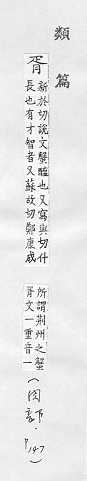 類篇
胥
新於切說文蟹醢也又寫與切什
長也有才智者又蘇故切鄭康成
所謂荆州之蟹
胥文一重音一